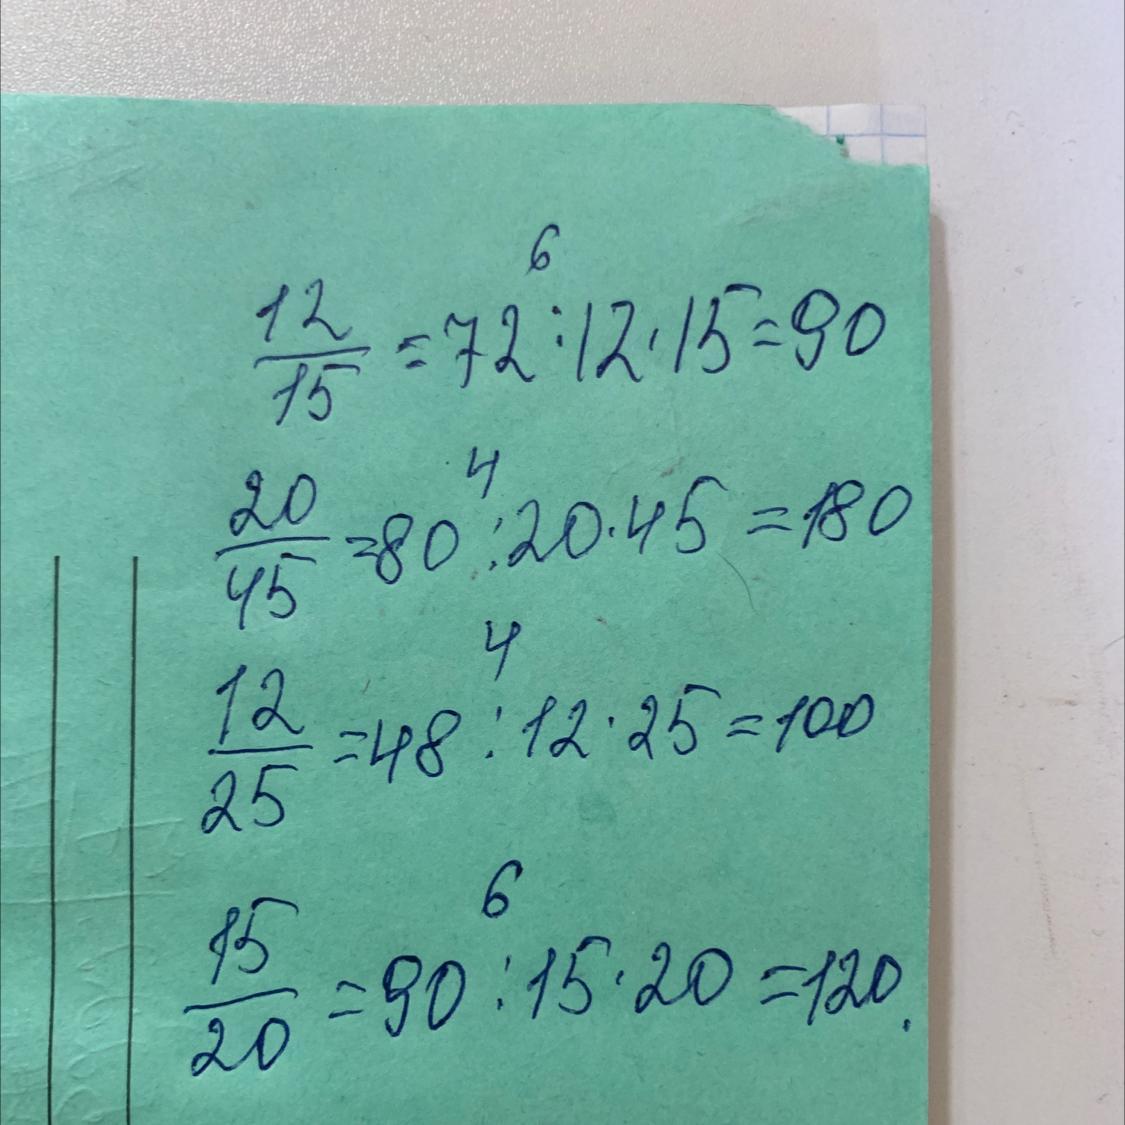 6
12/15 = 72 : 12 · 15 = 90
4
20/45 = 80 : 20 · 45 = 180
4
12/25 = 48 : 12 · 25 = 100
6
15/20 = 90 : 15 · 20 = 120.